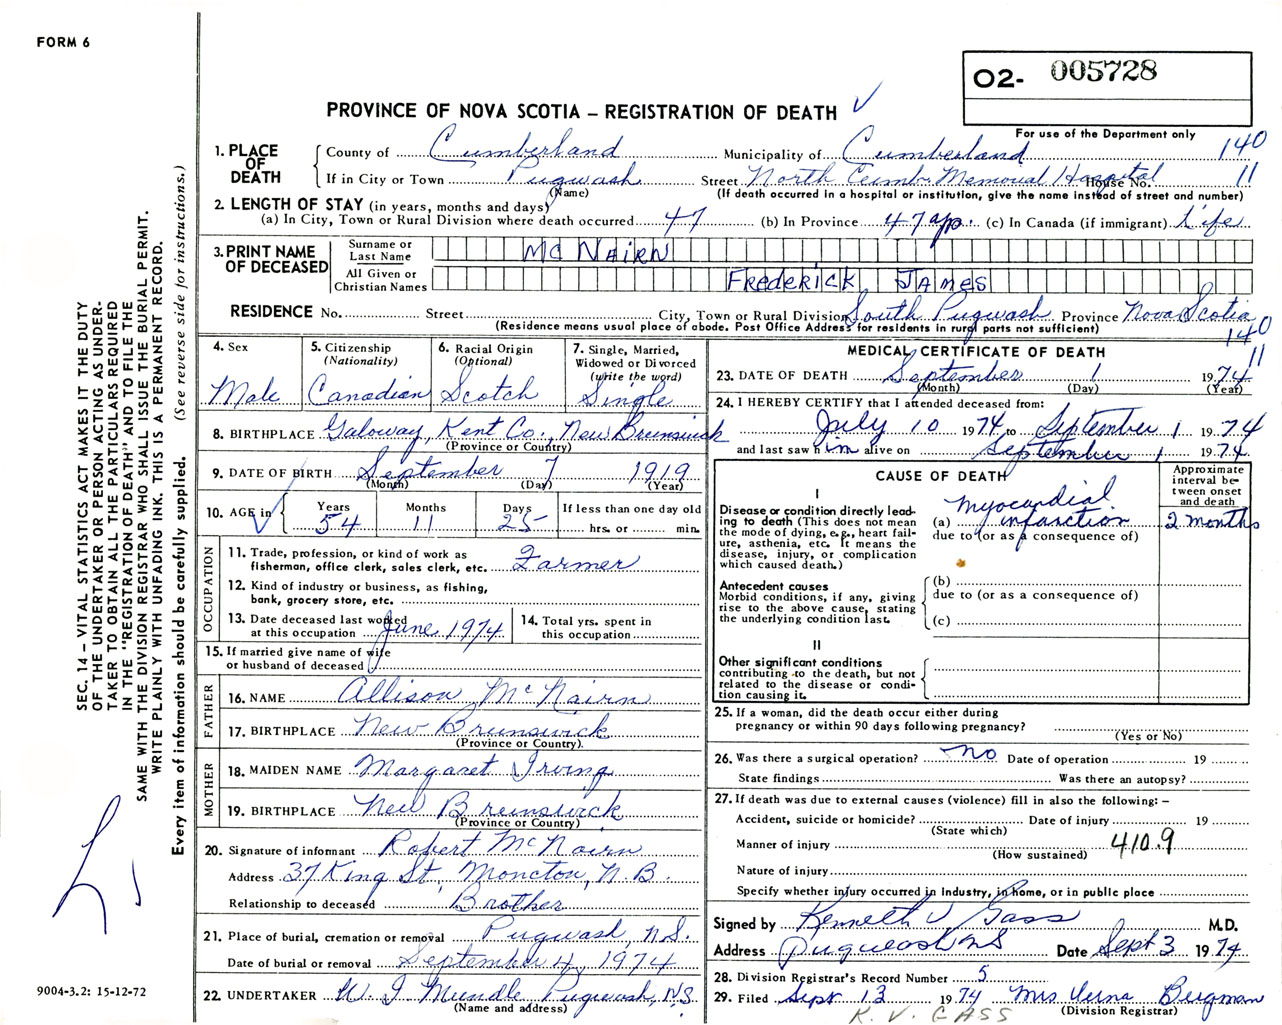 FORM 6
O2- 005728
PROVINCE OF NOVA SCOTIA – REGISTRATION OF DEATH
For use of the Department only
1. PLACE OF DEATH
County of Cumberland Municipality of Cumberland 140
If in City or Town Pugwash Street North Cumb. Memorial Hospital House No. 11
(Name) (If death occurred in a hospital or institution, give the name instead of street and number)
2. LENGTH OF STAY (in years, months and days)
(a) In City, Town or Rural Division where death occurred 47 (b) In Province 47 yrs. (c) In Canada (if immigrant) Life
3. PRINT NAME OF DECEASED
Surname or Last Name MC NAIRN
All Given or Christian Names FREDERICK JAMES
RESIDENCE No. Street City, Town or Rural Division South Pugwash Province Nova Scotia
(Residence means usual place of abode. Post Office Address for residents in rural parts not sufficient)
140
11
4. Sex
Male
5. Citizenship (Nationality)
Canadian
6. Racial Origin (Optional)
Scotch
7. Single, Married, Widowed or Divorced (write the word)
Single
8. BIRTHPLACE Galoway, Kent Co., New Brunswick
(Province or Country)
9. DATE OF BIRTH September 7 1919
(Month) (Day) (Year)
10. AGE in Years 54 Months 11 Days 25 If less than one day old
hrs. or min.
OCCUPATION
11. Trade, profession, or kind of work as fisherman, office clerk, sales clerk, etc. Farmer
12. Kind of industry or business, as fishing, bank, grocery store, etc.
13. Date deceased last worked at this occupation June 1974
14. Total yrs. spent in this occupation
15. If married give name of wife or husband of deceased
FATHER
16. NAME Allison McNairn
17. BIRTHPLACE New Brunswick
(Province or Country)
MOTHER
18. MAIDEN NAME Margaret Irving
19. BIRTHPLACE New Brunswick
(Province or Country)
20. Signature of informant Robert McNairn
Address 37 King St, Moncton, N.B.
Relationship to deceased Brother
21. Place of burial, cremation or removal Pugwash, N.S.
Date of burial or removal September 4, 1974
22. UNDERTAKER W. J. Mundle Pugwash, N.S.
(Name and address)
MEDICAL CERTIFICATE OF DEATH
23. DATE OF DEATH September 1 1974
(Month) (Day) (Year)
24. I HEREBY CERTIFY that I attended deceased from:
July 10 1974 to September 1 1974
and last saw him alive on September 1 1974
CAUSE OF DEATH
Approximate interval between onset and death
I
Disease or condition directly leading to death (This does not mean the mode of dying, e.g., heart failure, asthenia, etc. It means the disease, injury, or complication which caused death.)
(a) myocardial infarction 2 months
due to (or as a consequence of)
Antecedent causes
Morbid conditions, if any, giving rise to the above cause, stating the underlying condition last.
(b)
due to (or as a consequence of)
(c)
II
Other significant conditions contributing to the death, but not related to the disease or condition causing it.
25. If a woman, did the death occur either during pregnancy or within 90 days following pregnancy?
(Yes or No)
26. Was there a surgical operation? No Date of operation 19
State findings Was there an autopsy?
27. If death was due to external causes (violence) fill in also the following: –
Accident, suicide or homicide? Date of injury 19
(State which)
Manner of injury 410.9
(How sustained)
Nature of injury
Specify whether injury occurred in Industry, in home, or in public place
Signed by Kenneth V Gass M.D.
Address Pugwash NS Date Sept 3 1974
28. Division Registrar's Record Number 5
29. Filed Sept 13 1974 Mrs Verna Bergman
(Division Registrar)
K. V. GASS
SEC. 14 – VITAL STATISTICS ACT MAKES IT THE DUTY
OF THE UNDERTAKER OR PERSON ACTING AS UNDER-
TAKER TO OBTAIN ALL THE PARTICULARS REQUIRED
IN THE "REGISTRATION OF DEATH" AND TO FILE THE
SAME WITH THE DIVISION REGISTRAR WHO SHALL ISSUE THE BURIAL PERMIT.
WRITE PLAINLY WITH UNFADING INK. THIS IS A PERMANENT RECORD.
Every item of information should be carefully supplied. (See reverse side for instructions.)
9004-3.2: 15-12-72